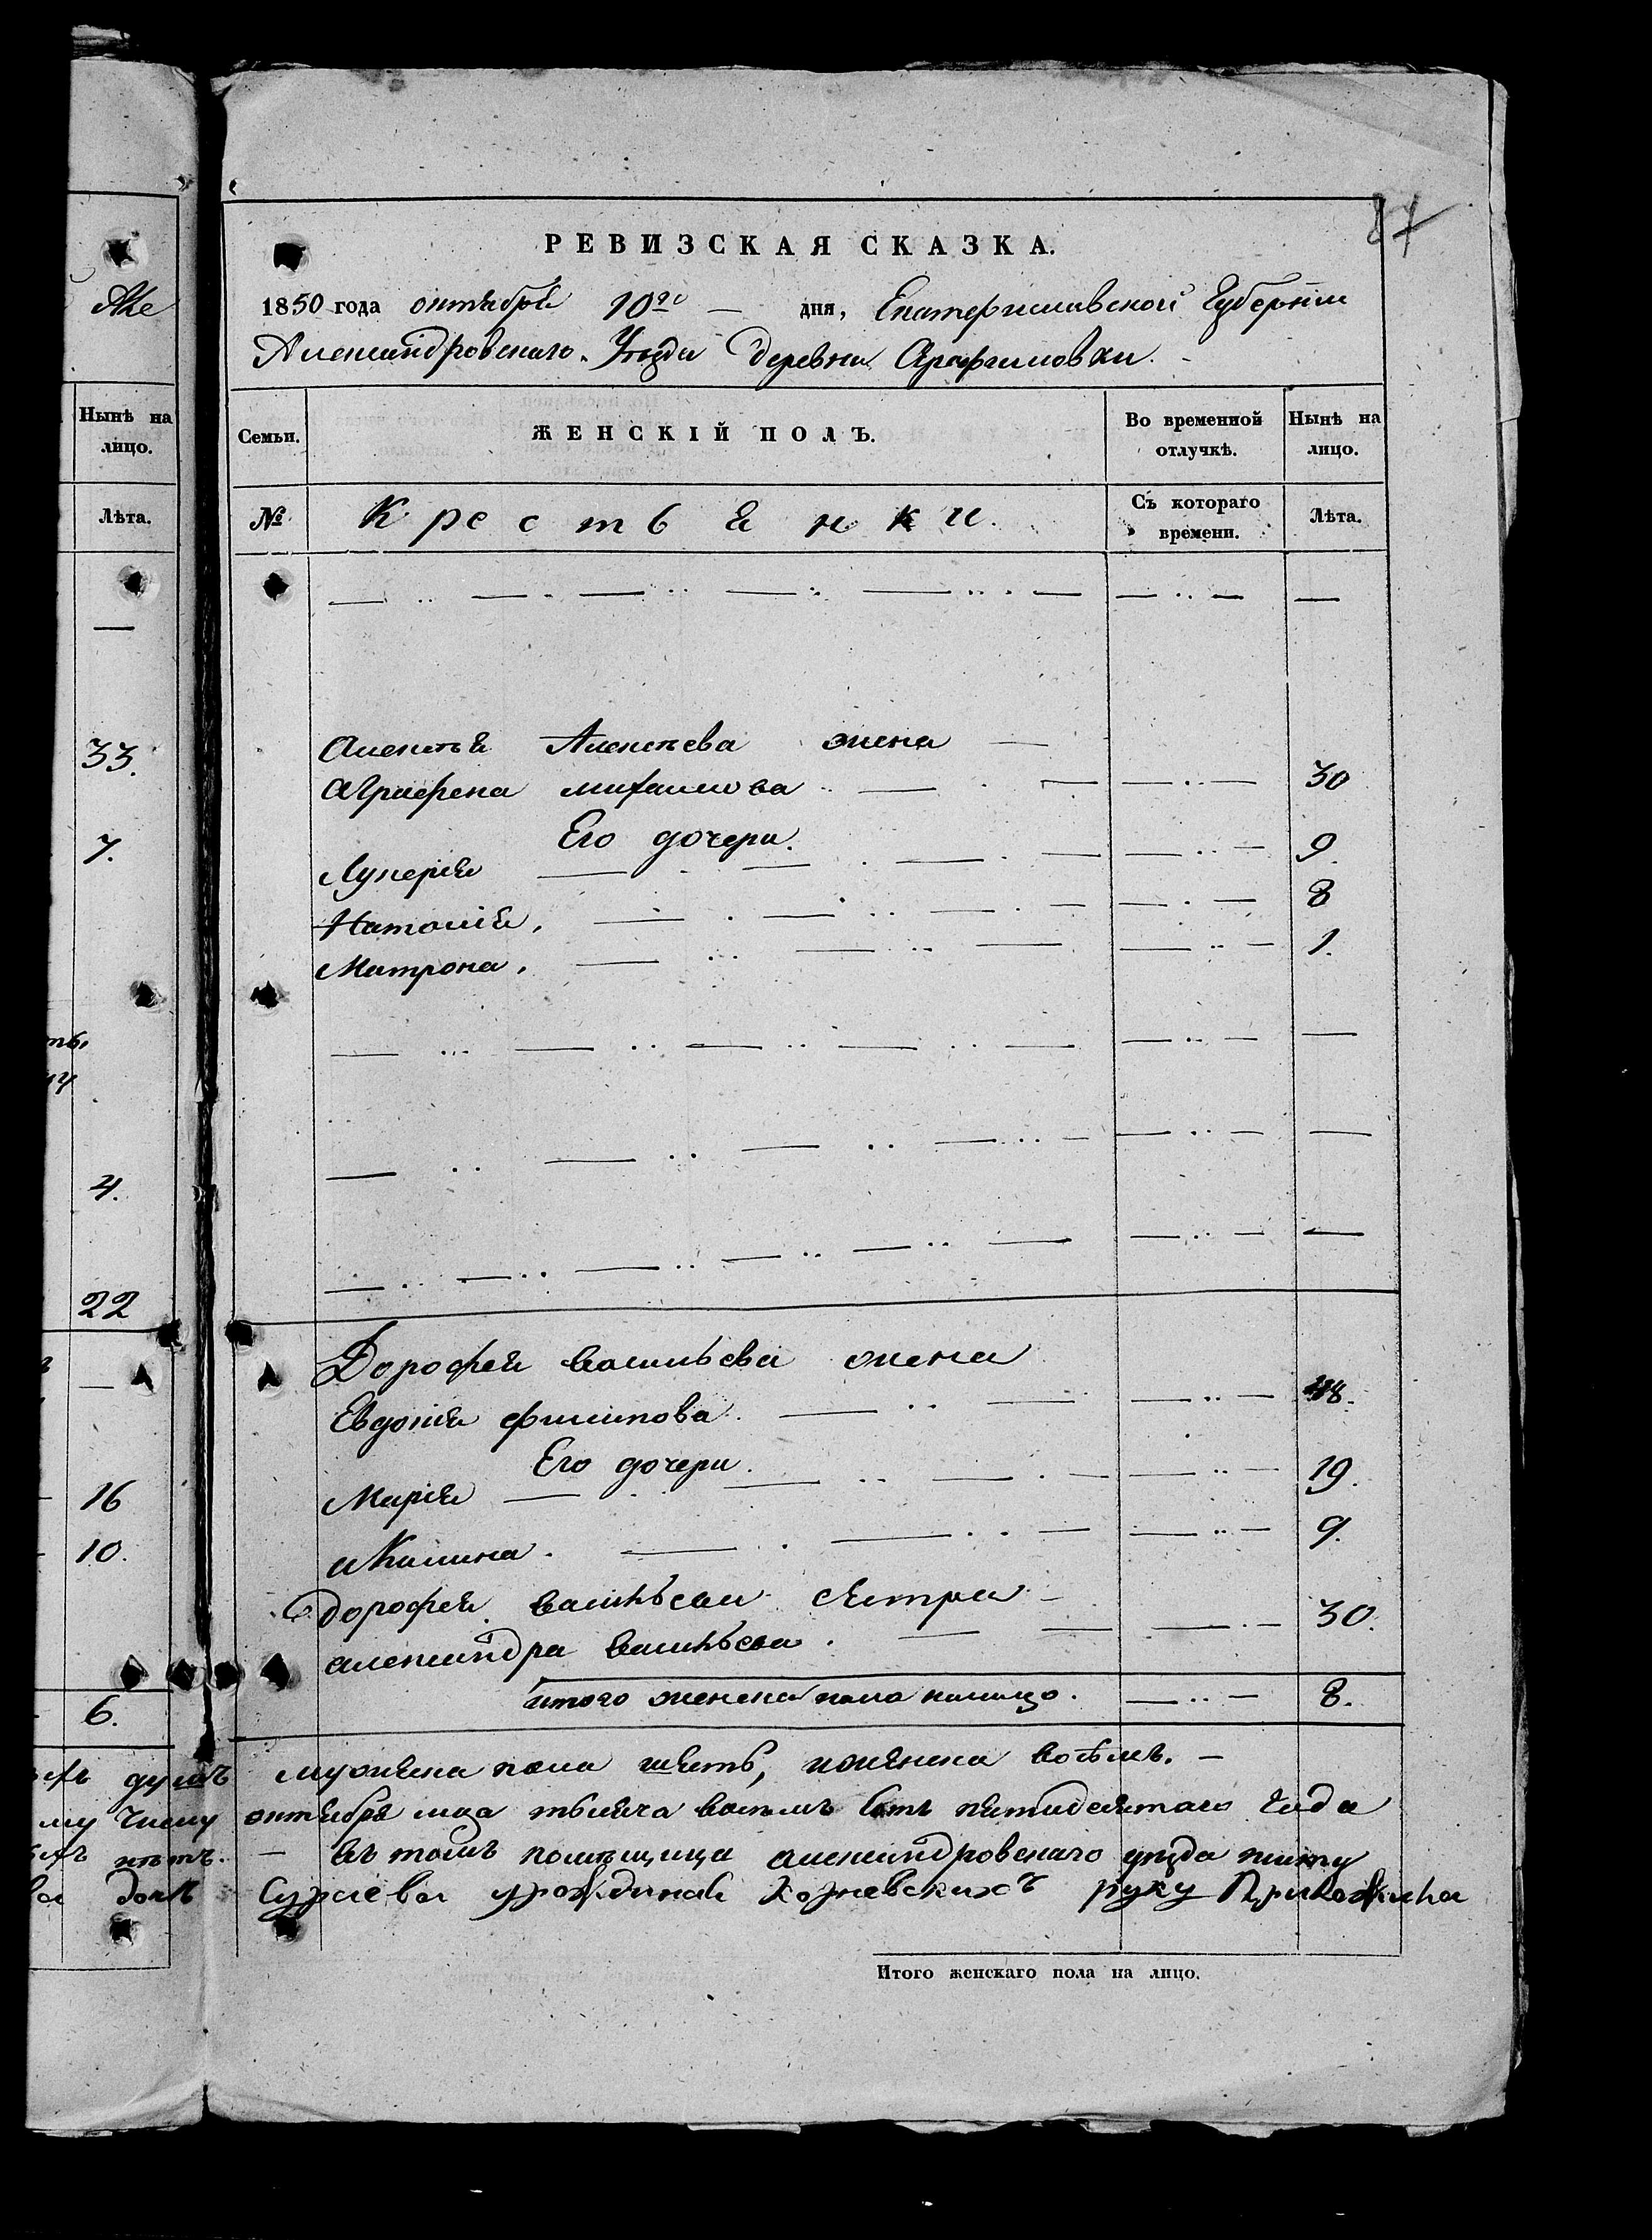 87
РЕВИЗСКАЯ СКАЗКА.
1850 года октября 10го дня, Екатеринславской Губернии
Александровскаго Уезда деревни
Семьи.
ЖЕНСКІЙ ПОЛЪ.
Во временной отлучкѣ.
Нынѣ на лицо.
№
Крестьянки.
Съ котораго времени.
Лѣта.
Алексѣя Алексѣева жена
Аграфена михаилова 30
Его дочери.
Лукерія 9.
Наталія, 8
Матрона, 1.
Дорофея васильева жена
Евдокія филипова 48.
Его дочери.
Марія 19.
Акилина. 9.
Дорофея васильева сестра
александра васильева. 30.
итого женска пола налицо. 8.
мужеска пола шесть, женска восѣмъ.
октября мца тысяча восемъ сотъ пятидесятаго года
въ томъ помѣщица александровскаго уѣзда
урожденая руку
Итого женскаго пола на лицо.
Нынѣ на лицо.
Лѣта.
33.
7.
4.
22
16
10.
6.
душъ
му числу
нѣтъ.